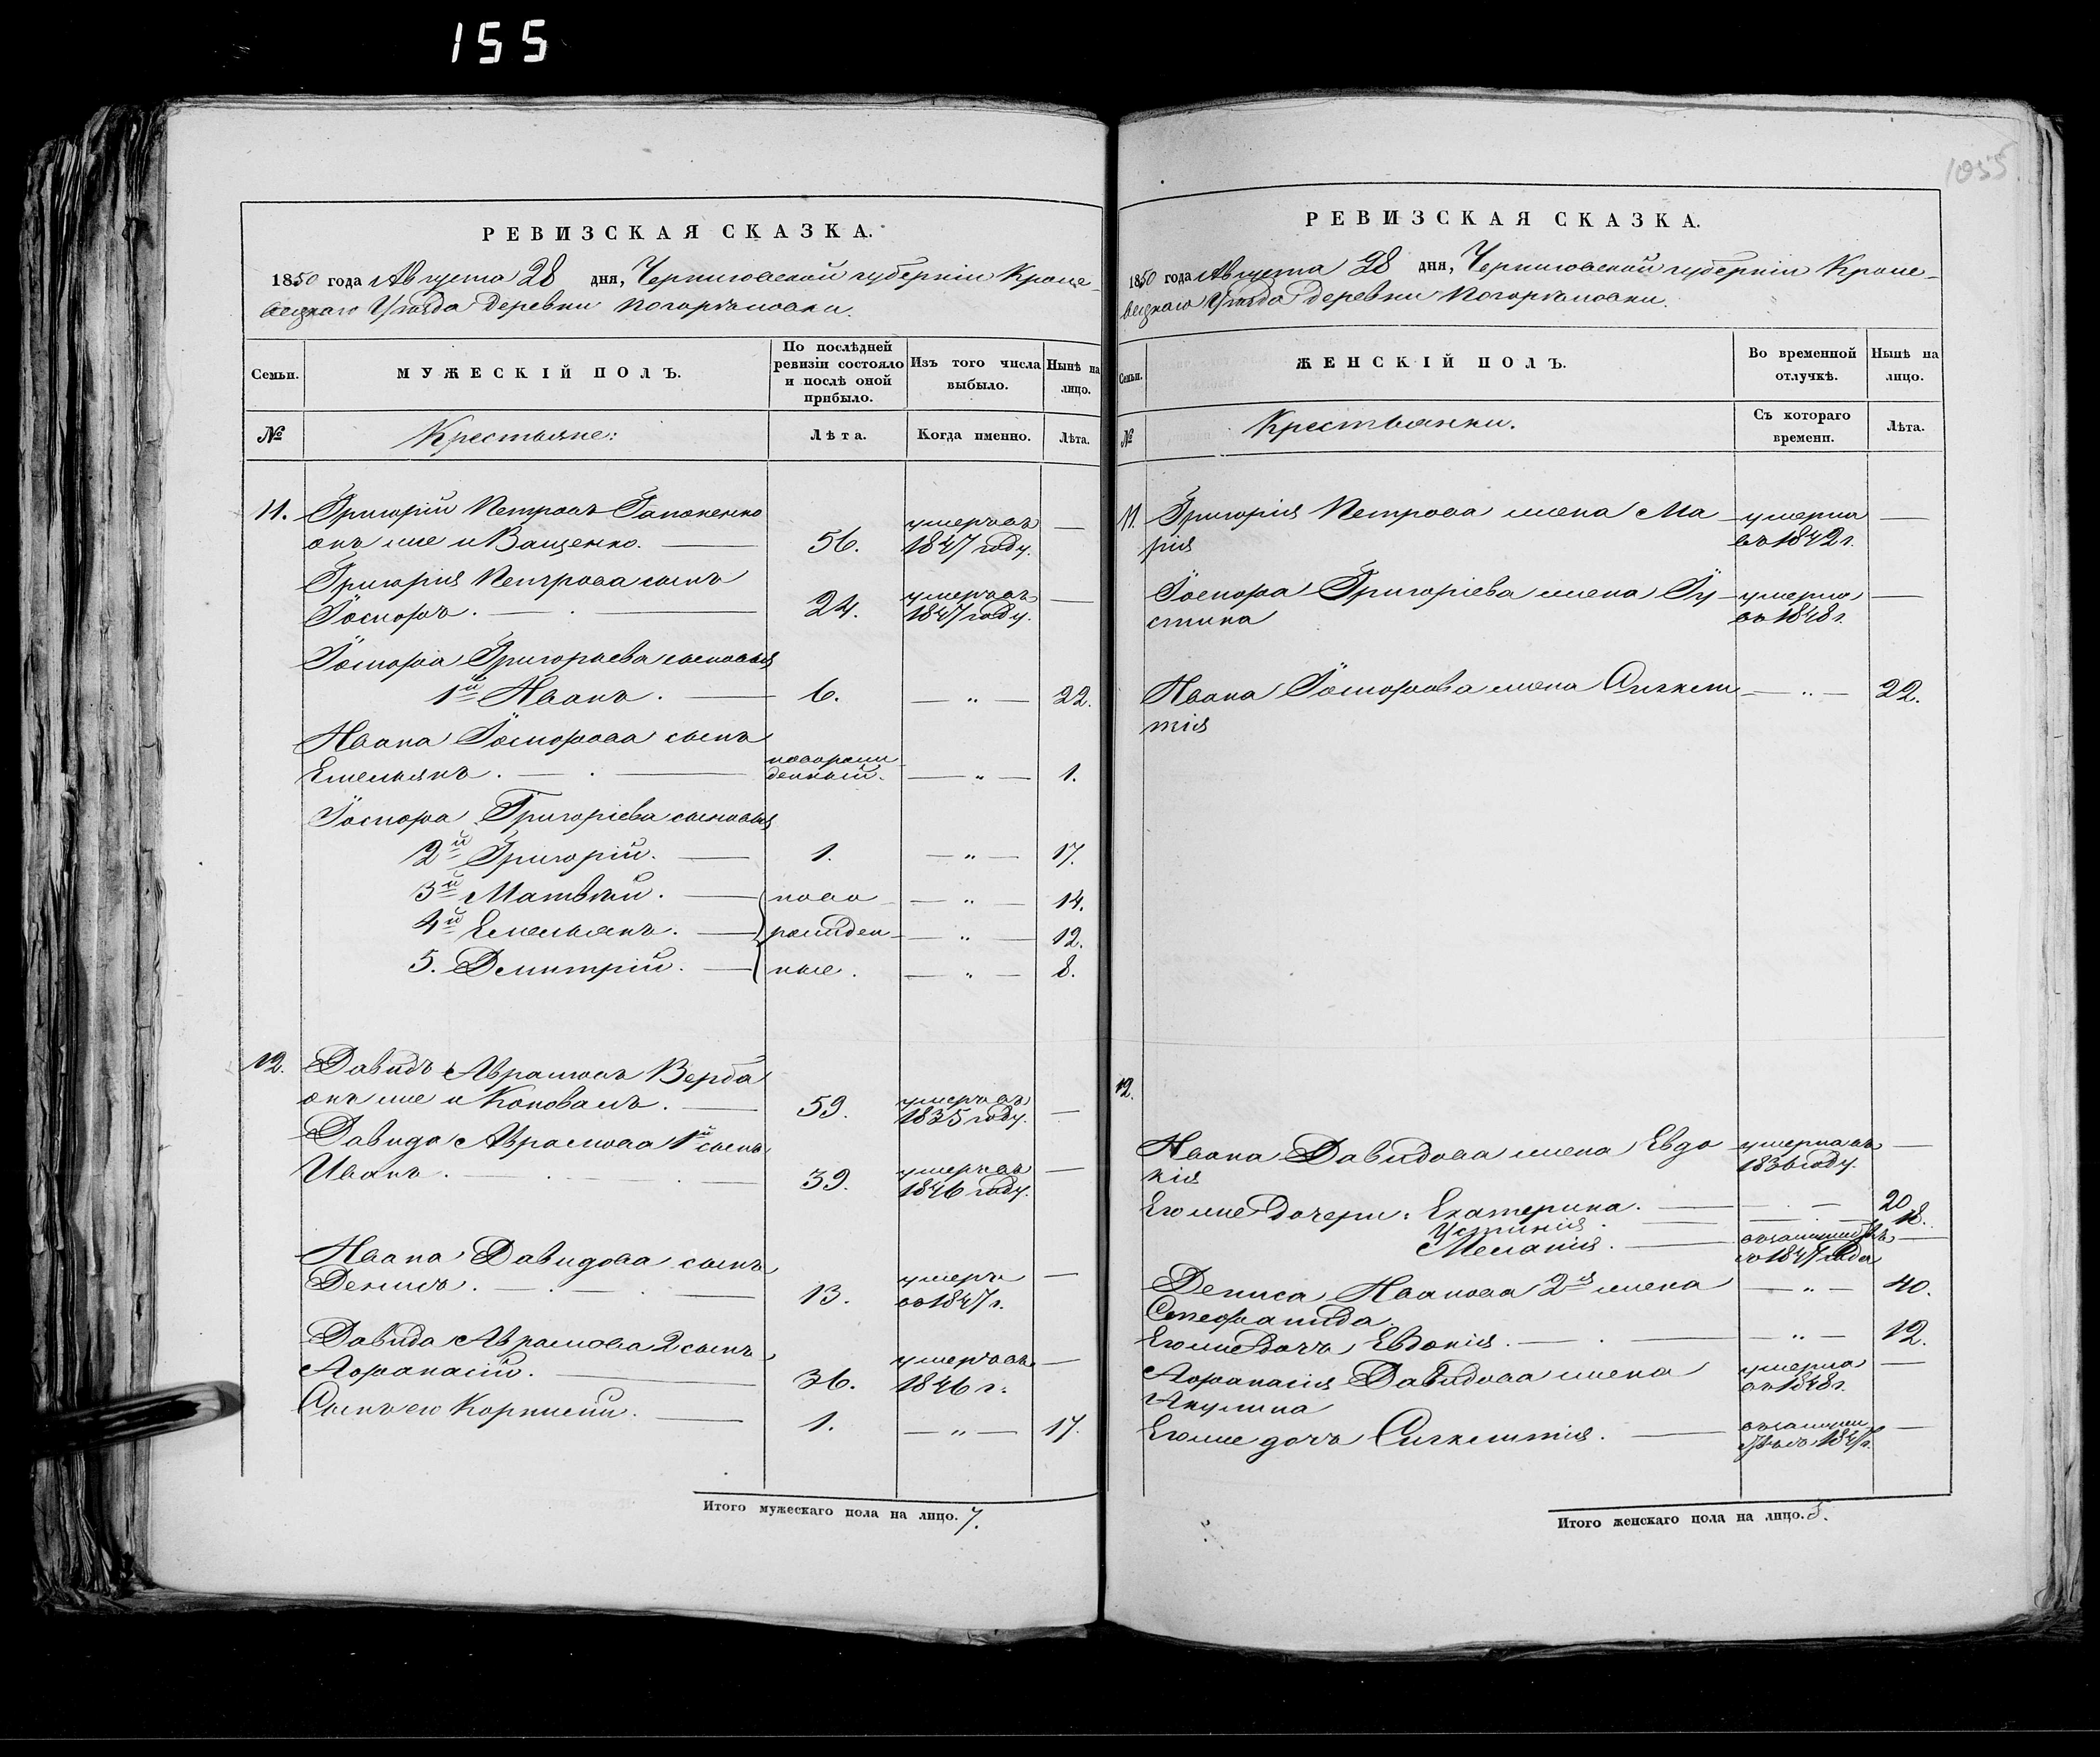 155
1055
РЕВИЗСКАЯ СКАЗКА.
1850 года Августа 28 дня, Черниговской губерніи Кроле-
вецкаго Уѣзда Деревни Погорѣловки.
Семьи. МУЖЕСКІЙ ПОЛЪ. По послѣдней ревизіи состояло и послѣ оной прибыло. Изъ того числа выбыло. Нынѣ на лицо.
№ Крестьяне: Лѣта. Когда именно. Лѣта.
11. Григорій Петровъ Гапоненко
онъ же и Ващенко. — 56. умеръ въ 1847 году. —
Григорія Петрова сынъ
Іосифъ. — 24. умеръ въ 1847 году. —
Іосифа Григорьева сыновья
1й Иванъ. — 6. — „ — 22.
Ивана Іосифова сынъ
Емельянъ. — новорожденный. — „ — 1.
Іосифа Григоріева сыновья
2й Григорій. — 1. — „ — 17.
3й Матвѣй. — ново — „ — 14.
4й Емельянъ. — рожден — „ — 12.
5. Дмитрій. — ные. — „ — 8.
12. Давидъ Аврамовъ Верба
онъ же и Коновалъ. — 59. умеръ въ 1835 году. —
Давида Аврамова 1й сынъ
Иванъ. — 39. умеръ въ 1846 году. —
Ивана Давидова сынъ
Денисъ. — 13. умеръ въ 1847 г. —
Давида Аврамова 2 сынъ
Афанасій. — 36. умеръ въ 1846 г. —
Сынъ его Корнилій. — 1. — „ — 17.
Итого мужескаго пола на лицо. 7.
РЕВИЗСКАЯ СКАЗКА.
1850 года Августа 28 дня, Черниговской губерніи Кроле-
вецкаго Уѣзда Деревни Погорѣловки.
Семьи. ЖЕНСКІЙ ПОЛЪ. Во временной отлучкѣ. Нынѣ на лицо.
№ Крестьянки. Съ котораго времени. Лѣта.
11. Григорія Петрова жена Ма
рія умерла въ 1842 г. —
Іосифа Григоріева жена Іу
стина умерла въ 1848 г. —
Ивана Іосифова жена
— „ — 22.
12.
Ивана Давидова жена Евдо
кія умерла въ 1836 году. —
Его же дочери: Екатерина. — 20
Устинія. — 18.
Меланія. — въ замужествѣ съ 1847 года —
Дениса Иванова 2я жена — „ — 40.
Степанида.
Его же дочь Евдокія. — „ — 12.
Афанасія Давидова жена
Акулина умерла въ 1848 г. —
Его же дочь — 1847 г. —
Итого женскаго пола на лицо. 5.